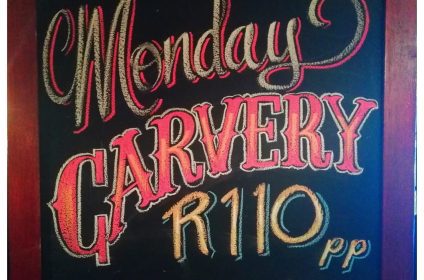 Monday
CARVERY
R110 pp